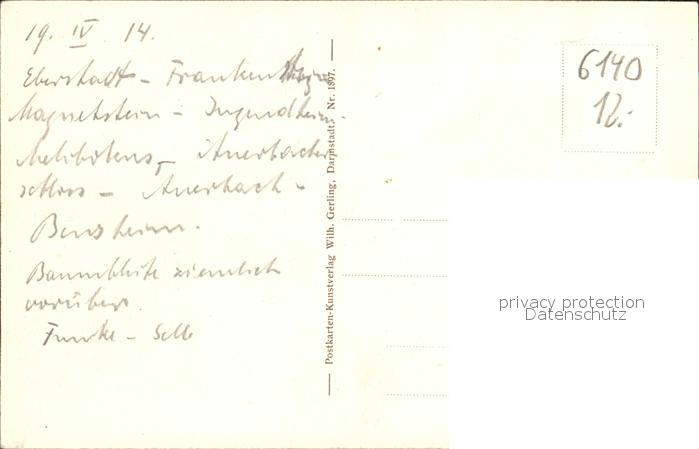 19. IV. 14.
Eberstadt - Frankenstein
Magnetstein - Jugendheim -
Melibokus - Auerbacher
schloss - Auerbach -
Bensheim.
Baumblüte ziemlich
vorüber.
Funke -
Postkarten-Kunstverlag Wilh. Gerling, Darmstadt. Nr. 1897.
6140
12.-
privacy protection
Datenschutz